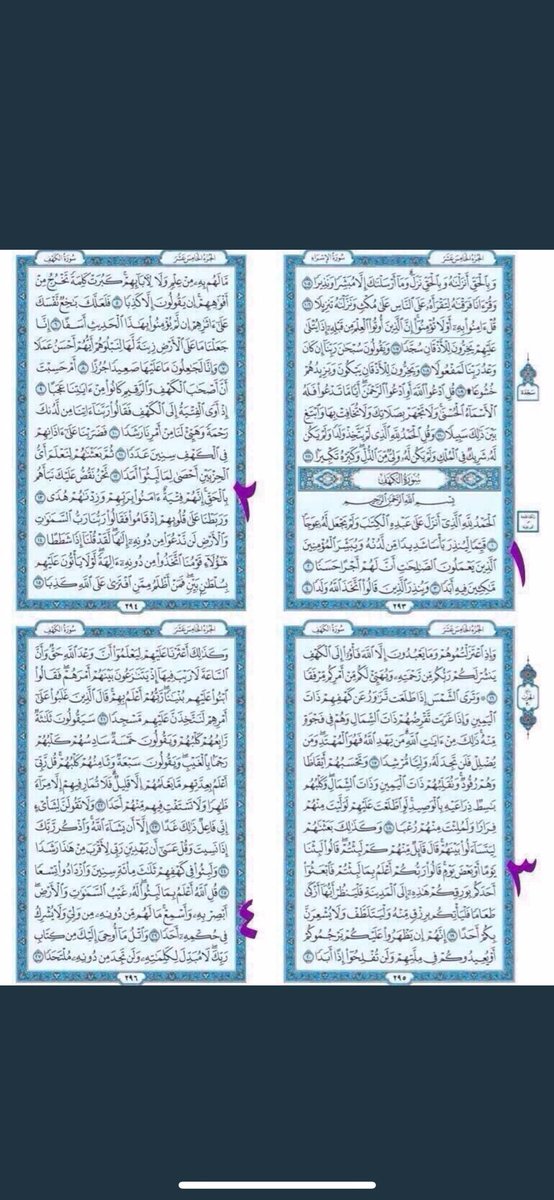 الجزء الخامس عشر
سورة الإسراء
وَبِٱلْحَقِّ أَنزَلْنَٰهُ وَبِٱلْحَقِّ نَزَلَ ۗ وَمَآ أَرْسَلْنَٰكَ إِلَّا مُبَشِّرًا وَنَذِيرًا ١٠٥
وَقُرْءَانًا فَرَقْنَٰهُ لِتَقْرَأَهُۥ عَلَى ٱلنَّاسِ عَلَىٰ مُكْثٍ وَنَزَّلْنَٰهُ تَنزِيلًا ١٠٦
قُلْ ءَامِنُوا۟ بِهِۦٓ أَوْ لَا تُؤْمِنُوٓا۟ ۚ إِنَّ ٱلَّذِينَ أُوتُوا۟ ٱلْعِلْمَ مِن قَبْلِهِۦٓ إِذَا يُتْلَىٰ
عَلَيْهِمْ يَخِرُّونَ لِلْأَذْقَانِ سُجَّدًا ١٠٧ وَيَقُولُونَ سُبْحَٰنَ رَبِّنَآ إِن كَانَ
وَعْدُ رَبِّنَا لَمَفْعُولًا ١٠٨ وَيَخِرُّونَ لِلْأَذْقَانِ يَبْكُونَ وَيَزِيدُهُمْ
خُشُوعًا ۩ ١٠٩ قُلِ ٱدْعُوا۟ ٱللَّهَ أَوِ ٱدْعُوا۟ ٱلرَّحْمَٰنَ ۖ أَيًّا مَّا تَدْعُوا۟ فَلَهُ
ٱلْأَسْمَآءُ ٱلْحُسْنَىٰ ۚ وَلَا تَجْهَرْ بِصَلَاتِكَ وَلَا تُخَافِتْ بِهَا وَٱبْتَغِ
بَيْنَ ذَٰلِكَ سَبِيلًا ١١٠ وَقُلِ ٱلْحَمْدُ لِلَّهِ ٱلَّذِى لَمْ يَتَّخِذْ وَلَدًا وَلَمْ يَكُن
لَّهُۥ شَرِيكٌ فِى ٱلْمُلْكِ وَلَمْ يَكُن لَّهُۥ وَلِىٌّ مِّنَ ٱلذُّلِّ ۖ وَكَبِّرْهُ تَكْبِيرًۢا ١١١
سُورَةُ الكَهْفِ
بِسْمِ ٱللَّهِ ٱلرَّحْمَٰنِ ٱلرَّحِيمِ
ٱلْحَمْدُ لِلَّهِ ٱلَّذِىٓ أَنزَلَ عَلَىٰ عَبْدِهِ ٱلْكِتَٰبَ وَلَمْ يَجْعَل لَّهُۥ عِوَجَا
١ قَيِّمًا لِّيُنذِرَ بَأْسًا شَدِيدًا مِّن لَّدُنْهُ وَيُبَشِّرَ ٱلْمُؤْمِنِينَ
ٱلَّذِينَ يَعْمَلُونَ ٱلصَّٰلِحَٰتِ أَنَّ لَهُمْ أَجْرًا حَسَنًا ٢
مَّٰكِثِينَ فِيهِ أَبَدًا ٣ وَيُنذِرَ ٱلَّذِينَ قَالُوا۟ ٱتَّخَذَ ٱللَّهُ وَلَدًا ٤
٢٩٣
سجدة
١
الجزء الخامس عشر
سورة الكهف
مَّا لَهُم بِهِۦ مِنْ عِلْمٍ وَلَا لِـَٔابَآئِهِمْ ۚ كَبُرَتْ كَلِمَةً تَخْرُجُ مِنْ
أَفْوَٰهِهِمْ ۚ إِن يَقُولُونَ إِلَّا كَذِبًا ٥ فَلَعَلَّكَ بَٰخِعٌ نَّفْسَكَ
عَلَىٰٓ ءَاثَٰرِهِمْ إِن لَّمْ يُؤْمِنُوا۟ بِهَٰذَا ٱلْحَدِيثِ أَسَفًا ٦ إِنَّا
جَعَلْنَا مَا عَلَى ٱلْأَرْضِ زِينَةً لَّهَا لِنَبْلُوَهُمْ أَيُّهُمْ أَحْسَنُ عَمَلًا
٧ وَإِنَّا لَجَٰعِلُونَ مَا عَلَيْهَا صَعِيدًا جُرُزًا ٨ أَمْ حَسِبْتَ
أَنَّ أَصْحَٰبَ ٱلْكَهْفِ وَٱلرَّقِيمِ كَانُوا۟ مِنْ ءَايَٰتِنَا عَجَبًا ٩
إِذْ أَوَى ٱلْفِتْيَةُ إِلَى ٱلْكَهْفِ فَقَالُوا۟ رَبَّنَآ ءَاتِنَا مِن لَّدُنكَ
رَحْمَةً وَهَيِّئْ لَنَا مِنْ أَمْرِنَا رَشَدًا ١٠ فَضَرَبْنَا عَلَىٰٓ ءَاذَانِهِمْ
فِى ٱلْكَهْفِ سِنِينَ عَدَدًا ١١ ثُمَّ بَعَثْنَٰهُمْ لِنَعْلَمَ أَىُّ
ٱلْحِزْبَيْنِ أَحْصَىٰ لِمَا لَبِثُوٓا۟ أَمَدًا ١٢ نَّحْنُ نَقُصُّ عَلَيْكَ نَبَأَهُم
بِٱلْحَقِّ ۚ إِنَّهُمْ فِتْيَةٌ ءَامَنُوا۟ بِرَبِّهِمْ وَزِدْنَٰهُمْ هُدًى ١٣
وَرَبَطْنَا عَلَىٰ قُلُوبِهِمْ إِذْ قَامُوا۟ فَقَالُوا۟ رَبُّنَا رَبُّ ٱلسَّمَٰوَٰتِ
وَٱلْأَرْضِ لَن نَّدْعُوَا۟ مِن دُونِهِۦٓ إِلَٰهًا ۖ لَّقَدْ قُلْنَآ إِذًا شَطَطًا ١٤
هَٰٓؤُلَآءِ قَوْمُنَا ٱتَّخَذُوا۟ مِن دُونِهِۦٓ ءَالِهَةً ۖ لَّوْلَا يَأْتُونَ عَلَيْهِم
بِسُلْطَٰنٍۭ بَيِّنٍ ۖ فَمَنْ أَظْلَمُ مِمَّنِ ٱفْتَرَىٰ عَلَى ٱللَّهِ كَذِبًا ١٥
٢٩٤
٢
الجزء الخامس عشر
سورة الكهف
وَإِذِ ٱعْتَزَلْتُمُوهُمْ وَمَا يَعْبُدُونَ إِلَّا ٱللَّهَ فَأْوُۥٓا۟ إِلَى ٱلْكَهْفِ
يَنشُرْ لَكُمْ رَبُّكُم مِّن رَّحْمَتِهِۦ وَيُهَيِّئْ لَكُم مِّنْ أَمْرِكُم مِّرْفَقًا
١٦ وَتَرَى ٱلشَّمْسَ إِذَا طَلَعَت تَّزَٰوَرُ عَن كَهْفِهِمْ ذَاتَ
ٱلْيَمِينِ وَإِذَا غَرَبَت تَّقْرِضُهُمْ ذَاتَ ٱلشِّمَالِ وَهُمْ فِى فَجْوَةٍ
مِّنْهُ ۚ ذَٰلِكَ مِنْ ءَايَٰتِ ٱللَّهِ ۗ مَن يَهْدِ ٱللَّهُ فَهُوَ ٱلْمُهْتَدِ ۖ وَمَن
يُضْلِلْ فَلَن تَجِدَ لَهُۥ وَلِيًّا مُّرْشِدًا ١٧ وَتَحْسَبُهُمْ أَيْقَاظًا
وَهُمْ رُقُودٌ ۚ وَنُقَلِّبُهُمْ ذَاتَ ٱلْيَمِينِ وَذَاتَ ٱلشِّمَالِ ۖ وَكَلْبُهُم
بَٰسِطٌ ذِرَاعَيْهِ بِٱلْوَصِيدِ ۚ لَوِ ٱطَّلَعْتَ عَلَيْهِمْ لَوَلَّيْتَ مِنْهُمْ
فِرَارًا وَلَمُلِئْتَ مِنْهُمْ رُعْبًا ١٨ وَكَذَٰلِكَ بَعَثْنَٰهُمْ
لِيَتَسَآءَلُوا۟ بَيْنَهُمْ ۚ قَالَ قَآئِلٌ مِّنْهُمْ كَمْ لَبِثْتُمْ ۖ قَالُوا۟ لَبِثْنَا
يَوْمًا أَوْ بَعْضَ يَوْمٍ ۚ قَالُوا۟ رَبُّكُمْ أَعْلَمُ بِمَا لَبِثْتُمْ فَٱبْعَثُوٓا۟
أَحَدَكُم بِوَرِقِكُمْ هَٰذِهِۦٓ إِلَى ٱلْمَدِينَةِ فَلْيَنظُرْ أَيُّهَآ أَزْكَىٰ
طَعَامًا فَلْيَأْتِكُم بِرِزْقٍ مِّنْهُ وَلْيَتَلَطَّفْ وَلَا يُشْعِرَنَّ
بِكُمْ أَحَدًا ١٩ إِنَّهُمْ إِن يَظْهَرُوا۟ عَلَيْكُمْ يَرْجُمُوكُمْ
أَوْ يُعِيدُوكُمْ فِى مِلَّتِهِمْ وَلَن تُفْلِحُوٓا۟ إِذًا أَبَدًا ٢٠
٢٩٥
٣
الجزء الخامس عشر
سورة الكهف
وَكَذَٰلِكَ أَعْثَرْنَا عَلَيْهِمْ لِيَعْلَمُوٓا۟ أَنَّ وَعْدَ ٱللَّهِ حَقٌّ وَأَنَّ
ٱلسَّاعَةَ لَا رَيْبَ فِيهَآ إِذْ يَتَنَٰزَعُونَ بَيْنَهُمْ أَمْرَهُمْ ۖ فَقَالُوا۟
ٱبْنُوا۟ عَلَيْهِم بُنْيَٰنًا ۖ رَّبُّهُمْ أَعْلَمُ بِهِمْ ۚ قَالَ ٱلَّذِينَ غَلَبُوا۟ عَلَىٰٓ
أَمْرِهِمْ لَنَتَّخِذَنَّ عَلَيْهِم مَّسْجِدًا ٢١ سَيَقُولُونَ ثَلَٰثَةٌ
رَّابِعُهُمْ كَلْبُهُمْ وَيَقُولُونَ خَمْسَةٌ سَادِسُهُمْ كَلْبُهُمْ
رَجْمًۢا بِٱلْغَيْبِ ۖ وَيَقُولُونَ سَبْعَةٌ وَثَامِنُهُمْ كَلْبُهُمْ ۚ قُل رَّبِّىٓ
أَعْلَمُ بِعِدَّتِهِم مَّا يَعْلَمُهُمْ إِلَّا قَلِيلٌ ۗ فَلَا تُمَارِ فِيهِمْ إِلَّا مِرَآءً
ظَٰهِرًا وَلَا تَسْتَفْتِ فِيهِم مِّنْهُمْ أَحَدًا ٢٢ وَلَا تَقُولَنَّ لِشَا۟ىْءٍ
إِنِّى فَاعِلٌ ذَٰلِكَ غَدًا ٢٣ إِلَّآ أَن يَشَآءَ ٱللَّهُ ۚ وَٱذْكُر رَّبَّكَ
إِذَا نَسِيتَ وَقُلْ عَسَىٰٓ أَن يَهْدِيَنِ رَبِّى لِأَقْرَبَ مِنْ هَٰذَا رَشَدًا
٢٤ وَلَبِثُوا۟ فِى كَهْفِهِمْ ثَلَٰثَ مِا۟ئَةٍ سِنِينَ وَٱزْدَادُوا۟ تِسْعًا
٢٥ قُلِ ٱللَّهُ أَعْلَمُ بِمَا لَبِثُوا۟ ۖ لَهُۥ غَيْبُ ٱلسَّمَٰوَٰتِ وَٱلْأَرْضِ ۖ
أَبْصِرْ بِهِۦ وَأَسْمِعْ ۚ مَا لَهُم مِّن دُونِهِۦ مِن وَلِىٍّ وَلَا يُشْرِكُ
فِى حُكْمِهِۦٓ أَحَدًا ٢٦ وَٱتْلُ مَآ أُوحِىَ إِلَيْكَ مِن كِتَابِ
رَبِّكَ ۖ لَا مُبَدِّلَ لِكَلِمَٰتِهِۦ وَلَن تَجِدَ مِن دُونِهِۦ مُلْتَحَدًا ٢٧
٢٩٦
٤